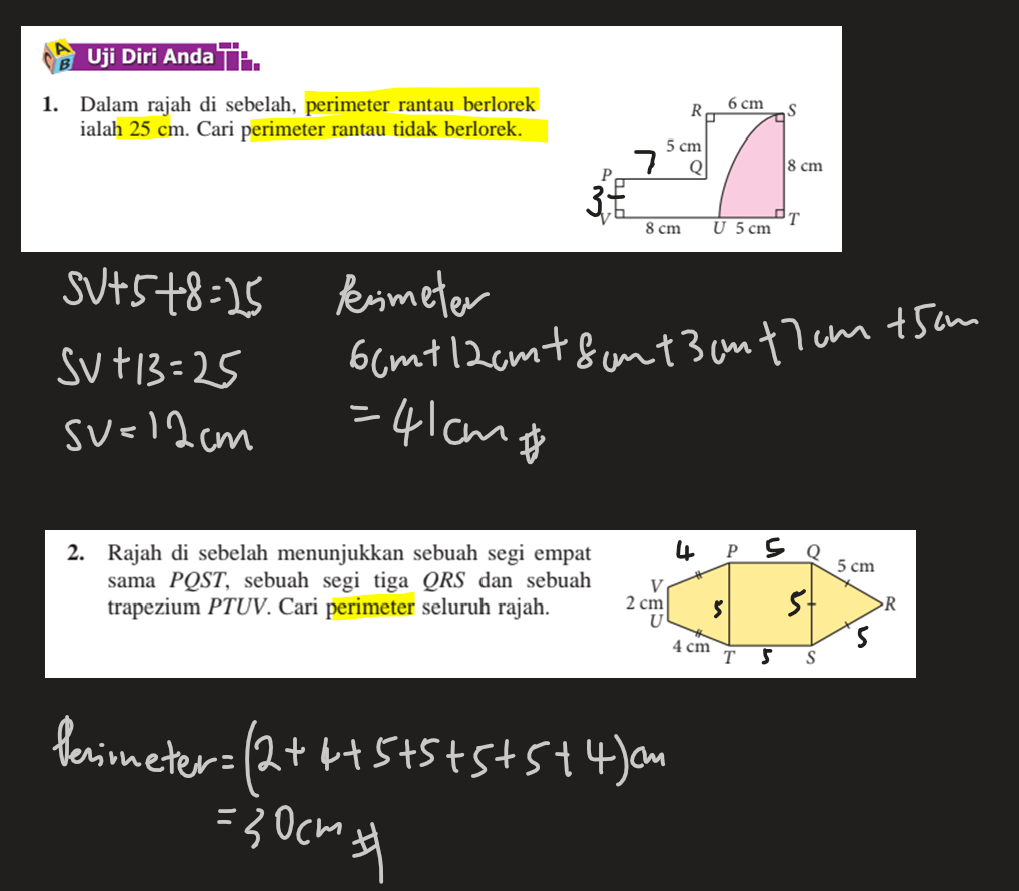 Uji Diri Anda
1. Dalam rajah di sebelah, perimeter rantau berlorek
ialah 25 cm. Cari perimeter rantau tidak berlorek.
R 6 cm S
5 cm
7
Q
8 cm
P
3
V
8 cm U 5 cm T
SV+5+8=25
SV+13=25
SV=12cm
Perimeter
6cm+12cm+8cm+3cm+7cm+5cm
=41cm #
2. Rajah di sebelah menunjukkan sebuah segi empat
sama PQST, sebuah segi tiga QRS dan sebuah
trapezium PTUV. Cari perimeter seluruh rajah.
4 P 5 Q
5 cm
V
2 cm 5 5 R
U
5
4 cm T 5 S
Perimeter=(2+4+5+5+5+5+4)cm
=30cm #